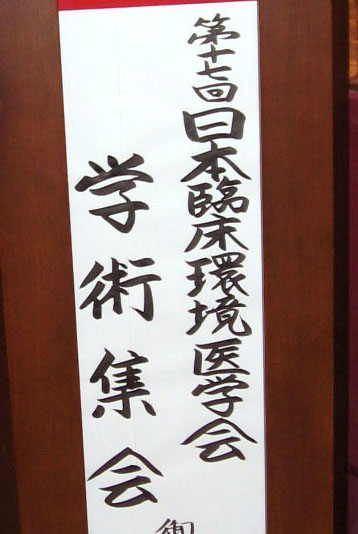 第十七回日本臨床環境医学会
学術集会
御